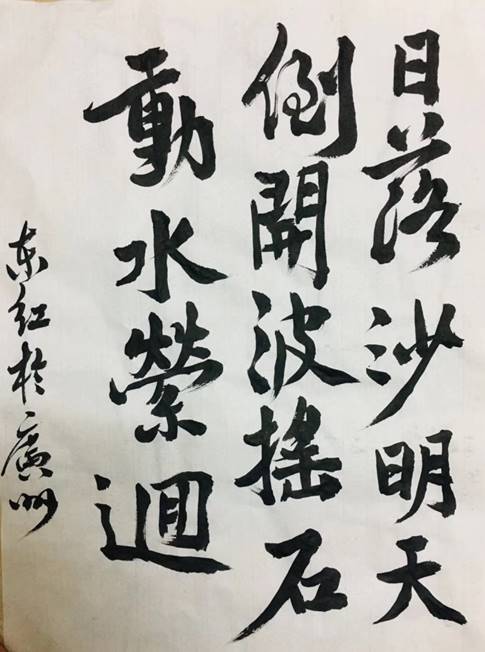 日落沙明天
倒開波搖石
動水縈迴
东红於廣州